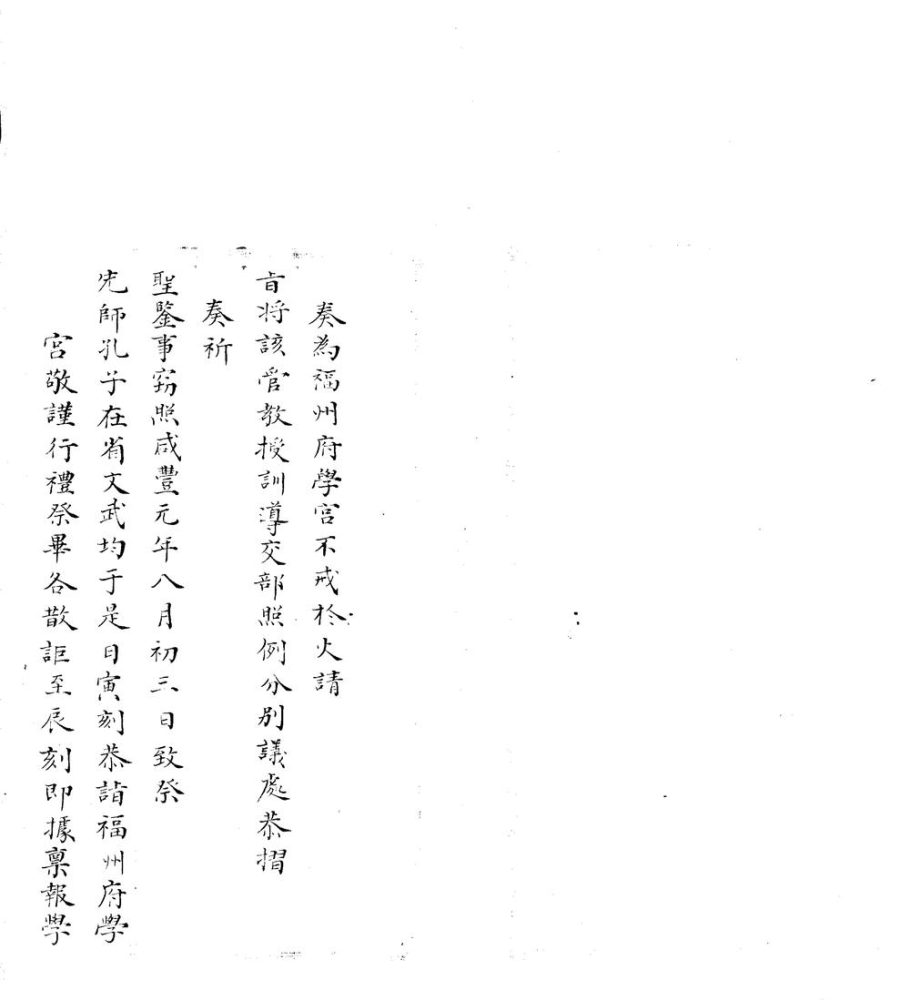 奏為福州府學宮不戒於火請
旨将該管教授訓導交部照例分別議處恭摺
奏祈
聖鑒事竊照咸豐元年八月初三日致祭
先師孔子在省文武均于是日寅刻恭詣福州府學
宮敬謹行禮祭畢各散詎至辰刻即據稟報學